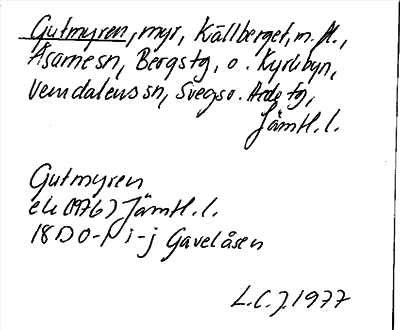 Gutmyren, myr, Källberget, m.fl.,
Åsarne sn, Bergs tg, o. Kyrkbyn,
Vemdalens sn, Svegs o.
Jämtl. l.
Gutmyren
ek (1976) Jämtl. l.
18D 0-1 i-j Gavelåsen
L.C.J. 1977